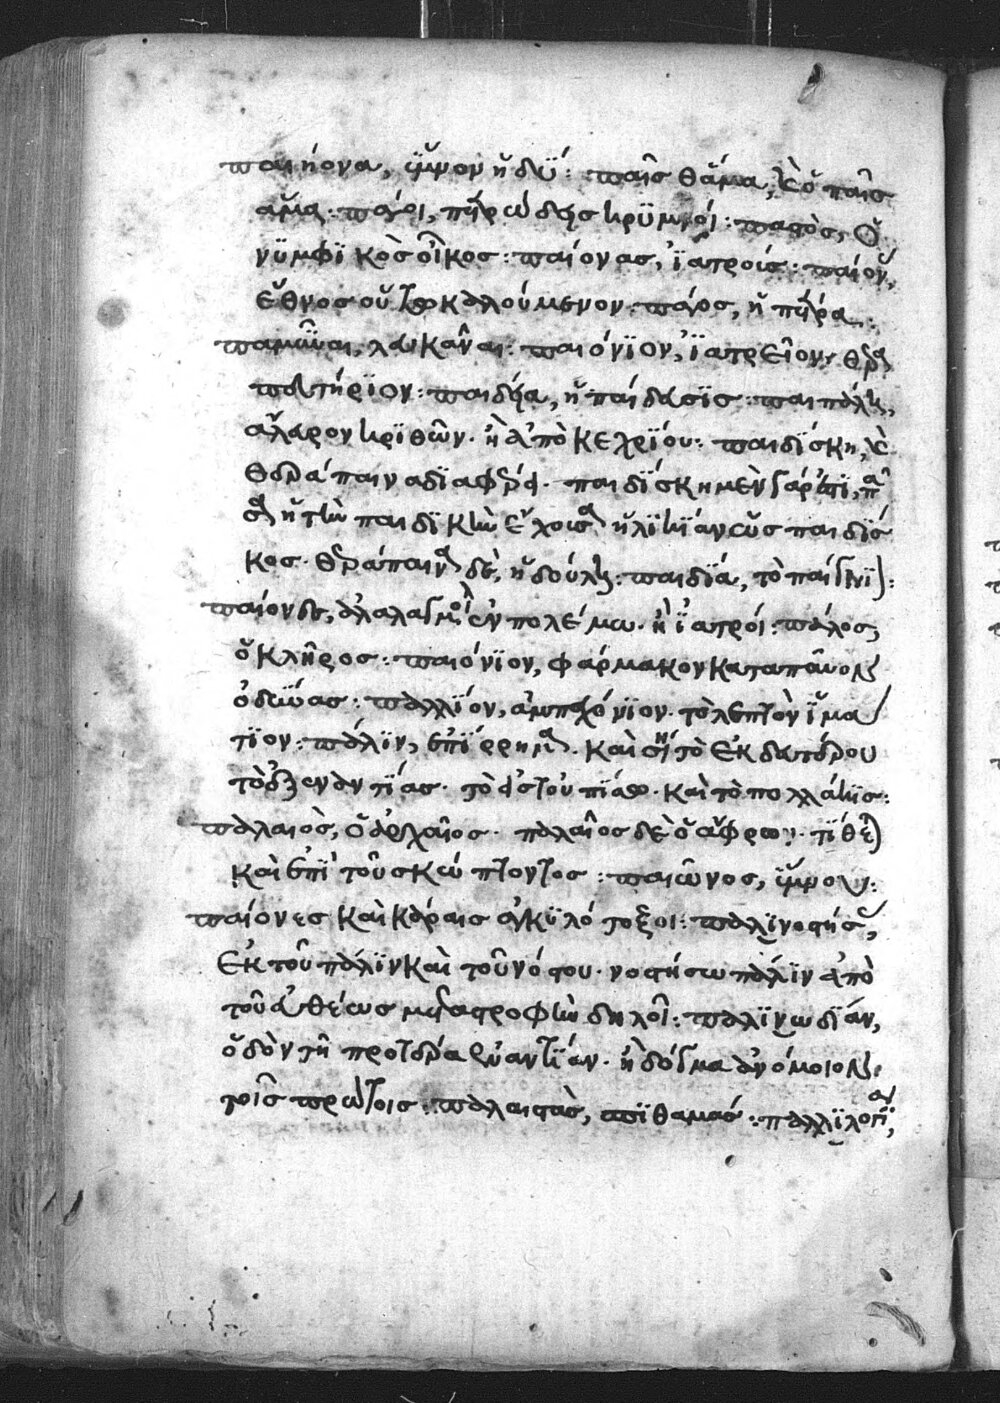 παιήονα, ὕμνον ἡδύ: παῖς θαμά, καὶ ὁ παῖς
ἅμα: πάγοι, πετρώδεις κρυμνοί: παστὸς, ὁ
νυμφικὸς οἶκος: παίονας, ἰατρούς: παίον,
ἔθνος οὕτω καλούμενον: πάρος, ἡ πήρα:
παμῶναι, λευκᾶναι: παιόνιον, ἰατρεῖον, θερα
πευτήριον: παιδεία, ἡ παίδευσις: παιπάλη,
ἄλευρον κριθῶν· ἢ ἀπὸ κέχριου: παιδίσκη, καὶ
θεράπαινα διαφέρει· παιδίσκη μὲν γάρ ἐστι, πᾶ
σα ἡ τὴν παιδικὴν ἔχουσα ἡλικίαν ὡς παιδίσ
κος· θεράπαινα δὲ, ἡ δούλη: παιδιὰ, τὸ παίγνι:
παίον δε, ἀλαλαγμοὶ ἐν πολέμω· ἢ ἰατροί: πάλος,
ὁ κλῆρος: παιόνιον, φάρμακον καταπαῦον
ὀδύνας: παλλίον, ἀμπεχόνιον· τὸ λεπτὸν ἱμά
τιον: πάλιν, ἐπίρρημα· καὶ σημαίνει τὸ ἐκ δευτέρου
τὸ ἐξ ἐναντίας· τὸ καὶ τὸ πολλάκις:
παλαιὸς, ὁ ἀρχαῖος· παλαῖος δὲ ὁ ἄφρων· τίθεται
καὶ ἐπὶ τοῦ σκώπτοντος: παιῶνος, ὕμνου:
παίονες καὶ κᾶρες ἀγκυλότοξοι: παλινοστήσας,
ἐκ τοῦ πάλιν καὶ τοῦ νόστου· νοστήσω πάλιν ἀπὸ
τοῦ εὐθέως μεταστροφὴν δηλοῖ: παλινωδίαν,
ὁδὸν τῇ προτέρα ἐναντίαν· ἢ δόγμα ἀνόμοιον
τοῖς πρώτοις: παλαιστὰς, σπιθαμάς: παλλιλογία,